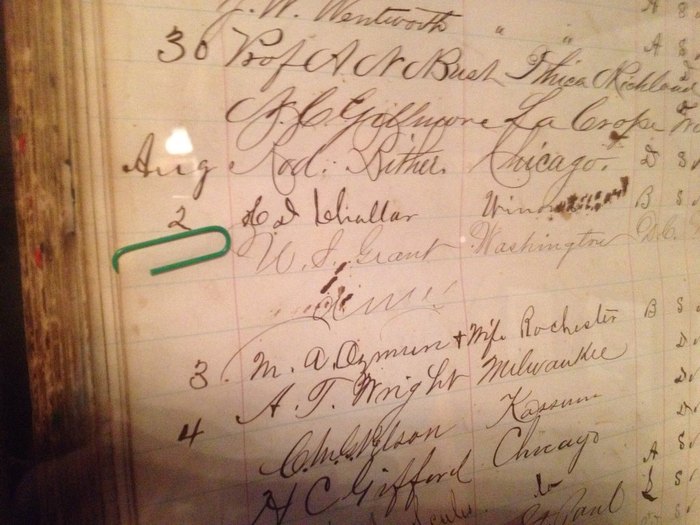 J. W. Wentworth " " A S
30 Prof A N Bush Ithica Richland
N. C. Gillmore La Crosse
Aug Rod. Bither. Chicago. D S
2 Challar Wino B S
U. S. Grant Washington D.C.
3. M. A. Ozmun + Wife Rochester B S
A. T. Wright Milwaukee D
4 Nelson Kasson D
H C Gifford Chicago A S
St Paul